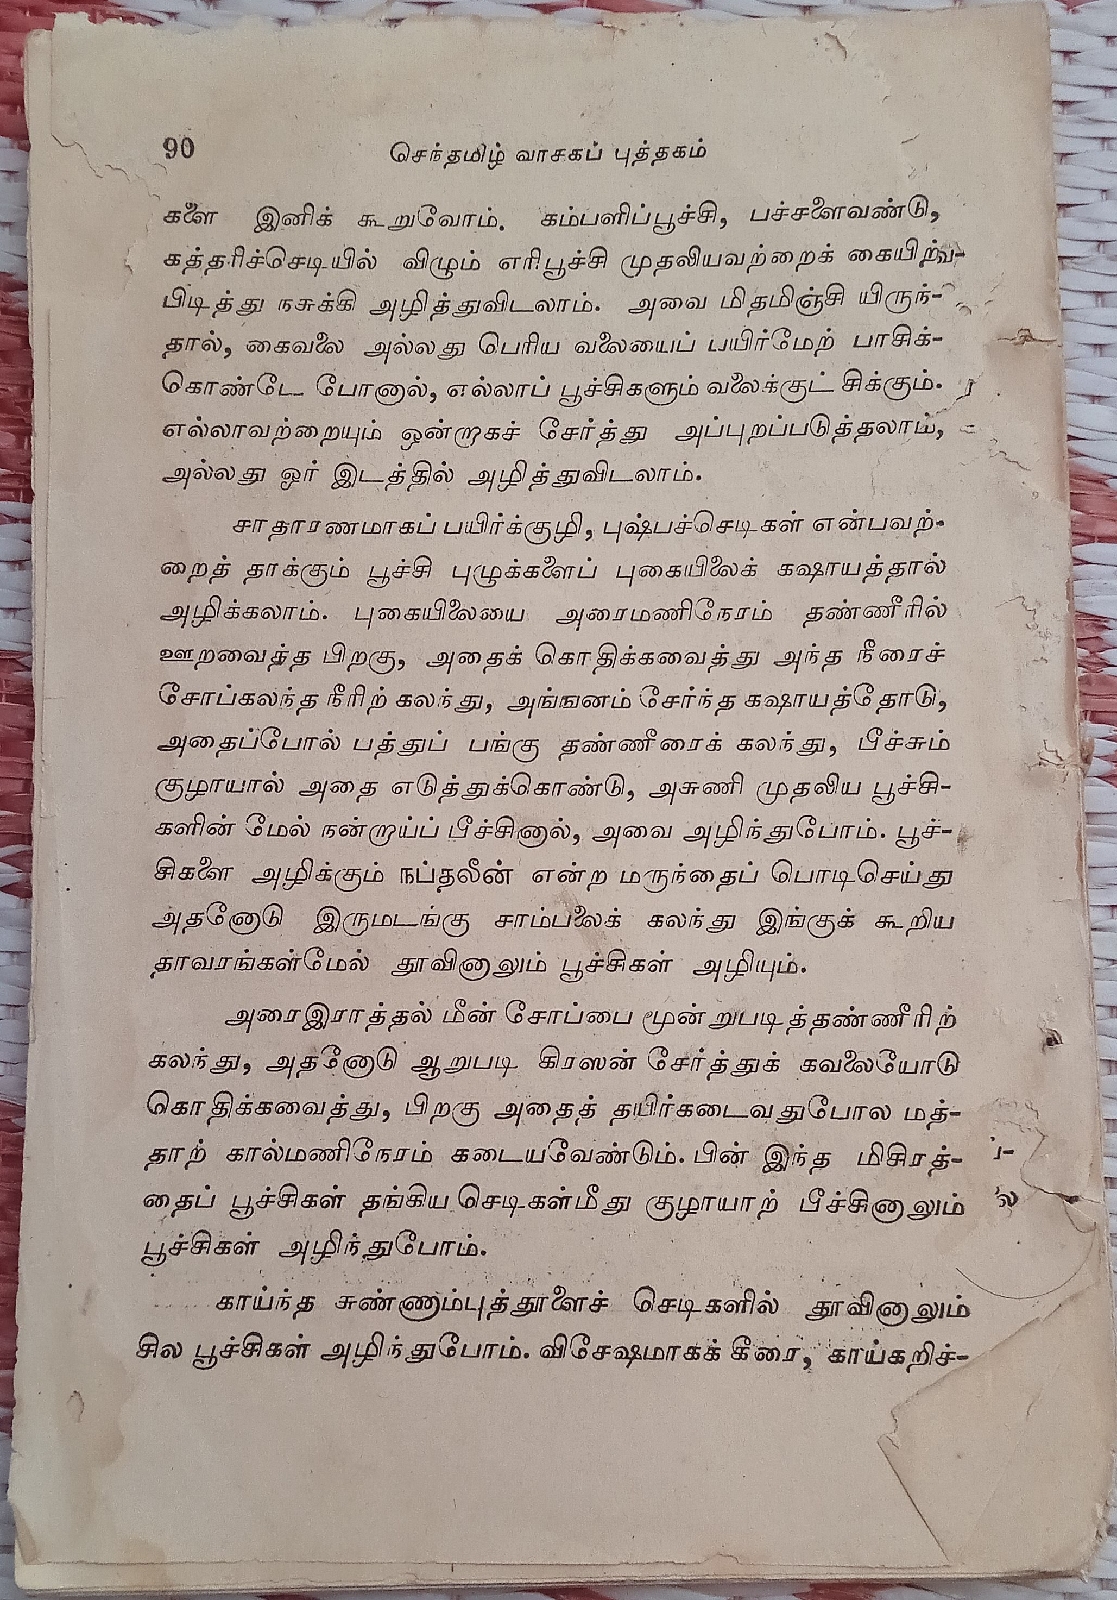 90
செந்தமிழ் வாசகப் புத்தகம்
களை இனிக் கூறுவோம். கம்பளிப்பூச்சி, பச்சளைவண்டு,
கத்தரிச்செடியில் விழும் எரிபூச்சி முதலியவற்றைக் கையிற்
பிடித்து நசுக்கி அழித்துவிடலாம். அவை மிதமிஞ்சி யிருந்-
தால், கைவலை அல்லது பெரிய வலையைப் பயிர்மேற் பாசிக்-
கொண்டே போனால், எல்லாப் பூச்சிகளும் வலைக்குட் சிக்கும்.
எல்லாவற்றையும் ஒன்றாகச் சேர்த்து அப்புறப்படுத்தலாம்,
அல்லது ஓர் இடத்தில் அழித்துவிடலாம்.
சாதாரணமாகப் பயிர்க்குழி, புஷ்பச்செடிகள் என்பவற்-
றைத் தாக்கும் பூச்சி புழுக்களைப் புகையிலைக் கஷாயத்தால்
அழிக்கலாம். புகையிலையை அரைமணிநேரம் தண்ணீரில்
ஊறவைத்த பிறகு, அதைக் கொதிக்கவைத்து அந்த நீரைச்
சோப்கலந்த நீரிற் கலந்து, அங்ஙனம் சேர்ந்த கஷாயத்தோடு,
அதைப்போல் பத்துப் பங்கு தண்ணீரைக் கலந்து, பீச்சும்
குழாயால் அதை எடுத்துக்கொண்டு, அசுணி முதலிய பூச்சி-
களின் மேல் நன்றாய்ப் பீச்சினால், அவை அழிந்துபோம். பூச்-
சிகளை அழிக்கும் நப்தலீன் என்ற மருந்தைப் பொடிசெய்து
அதனோடு இருமடங்கு சாம்பலைக் கலந்து இங்குக் கூறிய
தாவரங்கள்மேல் தூவினாலும் பூச்சிகள் அழியும்.
அரைஇராத்தல் மீன் சோப்பை மூன்றுபடித்தண்ணீரிற்
கலந்து, அதனோடு ஆறுபடி கிரஸன் சேர்த்துக் கவலையோடு
கொதிக்கவைத்து, பிறகு அதைத் தயிர்கடைவதுபோல மத்-
தாற் கால்மணிநேரம் கடையவேண்டும். பின் இந்த மிசிரத்-
தைப் பூச்சிகள் தங்கிய செடிகள்மீது குழாயாற் பீச்சினாலும்
பூச்சிகள் அழிந்துபோம்.
காய்ந்த சுண்ணாம்புத்தூளைச் செடிகளில் தூவினாலும்
சில பூச்சிகள் அழிந்துபோம். விசேஷமாகக் கீரை, காய்கறிச்-